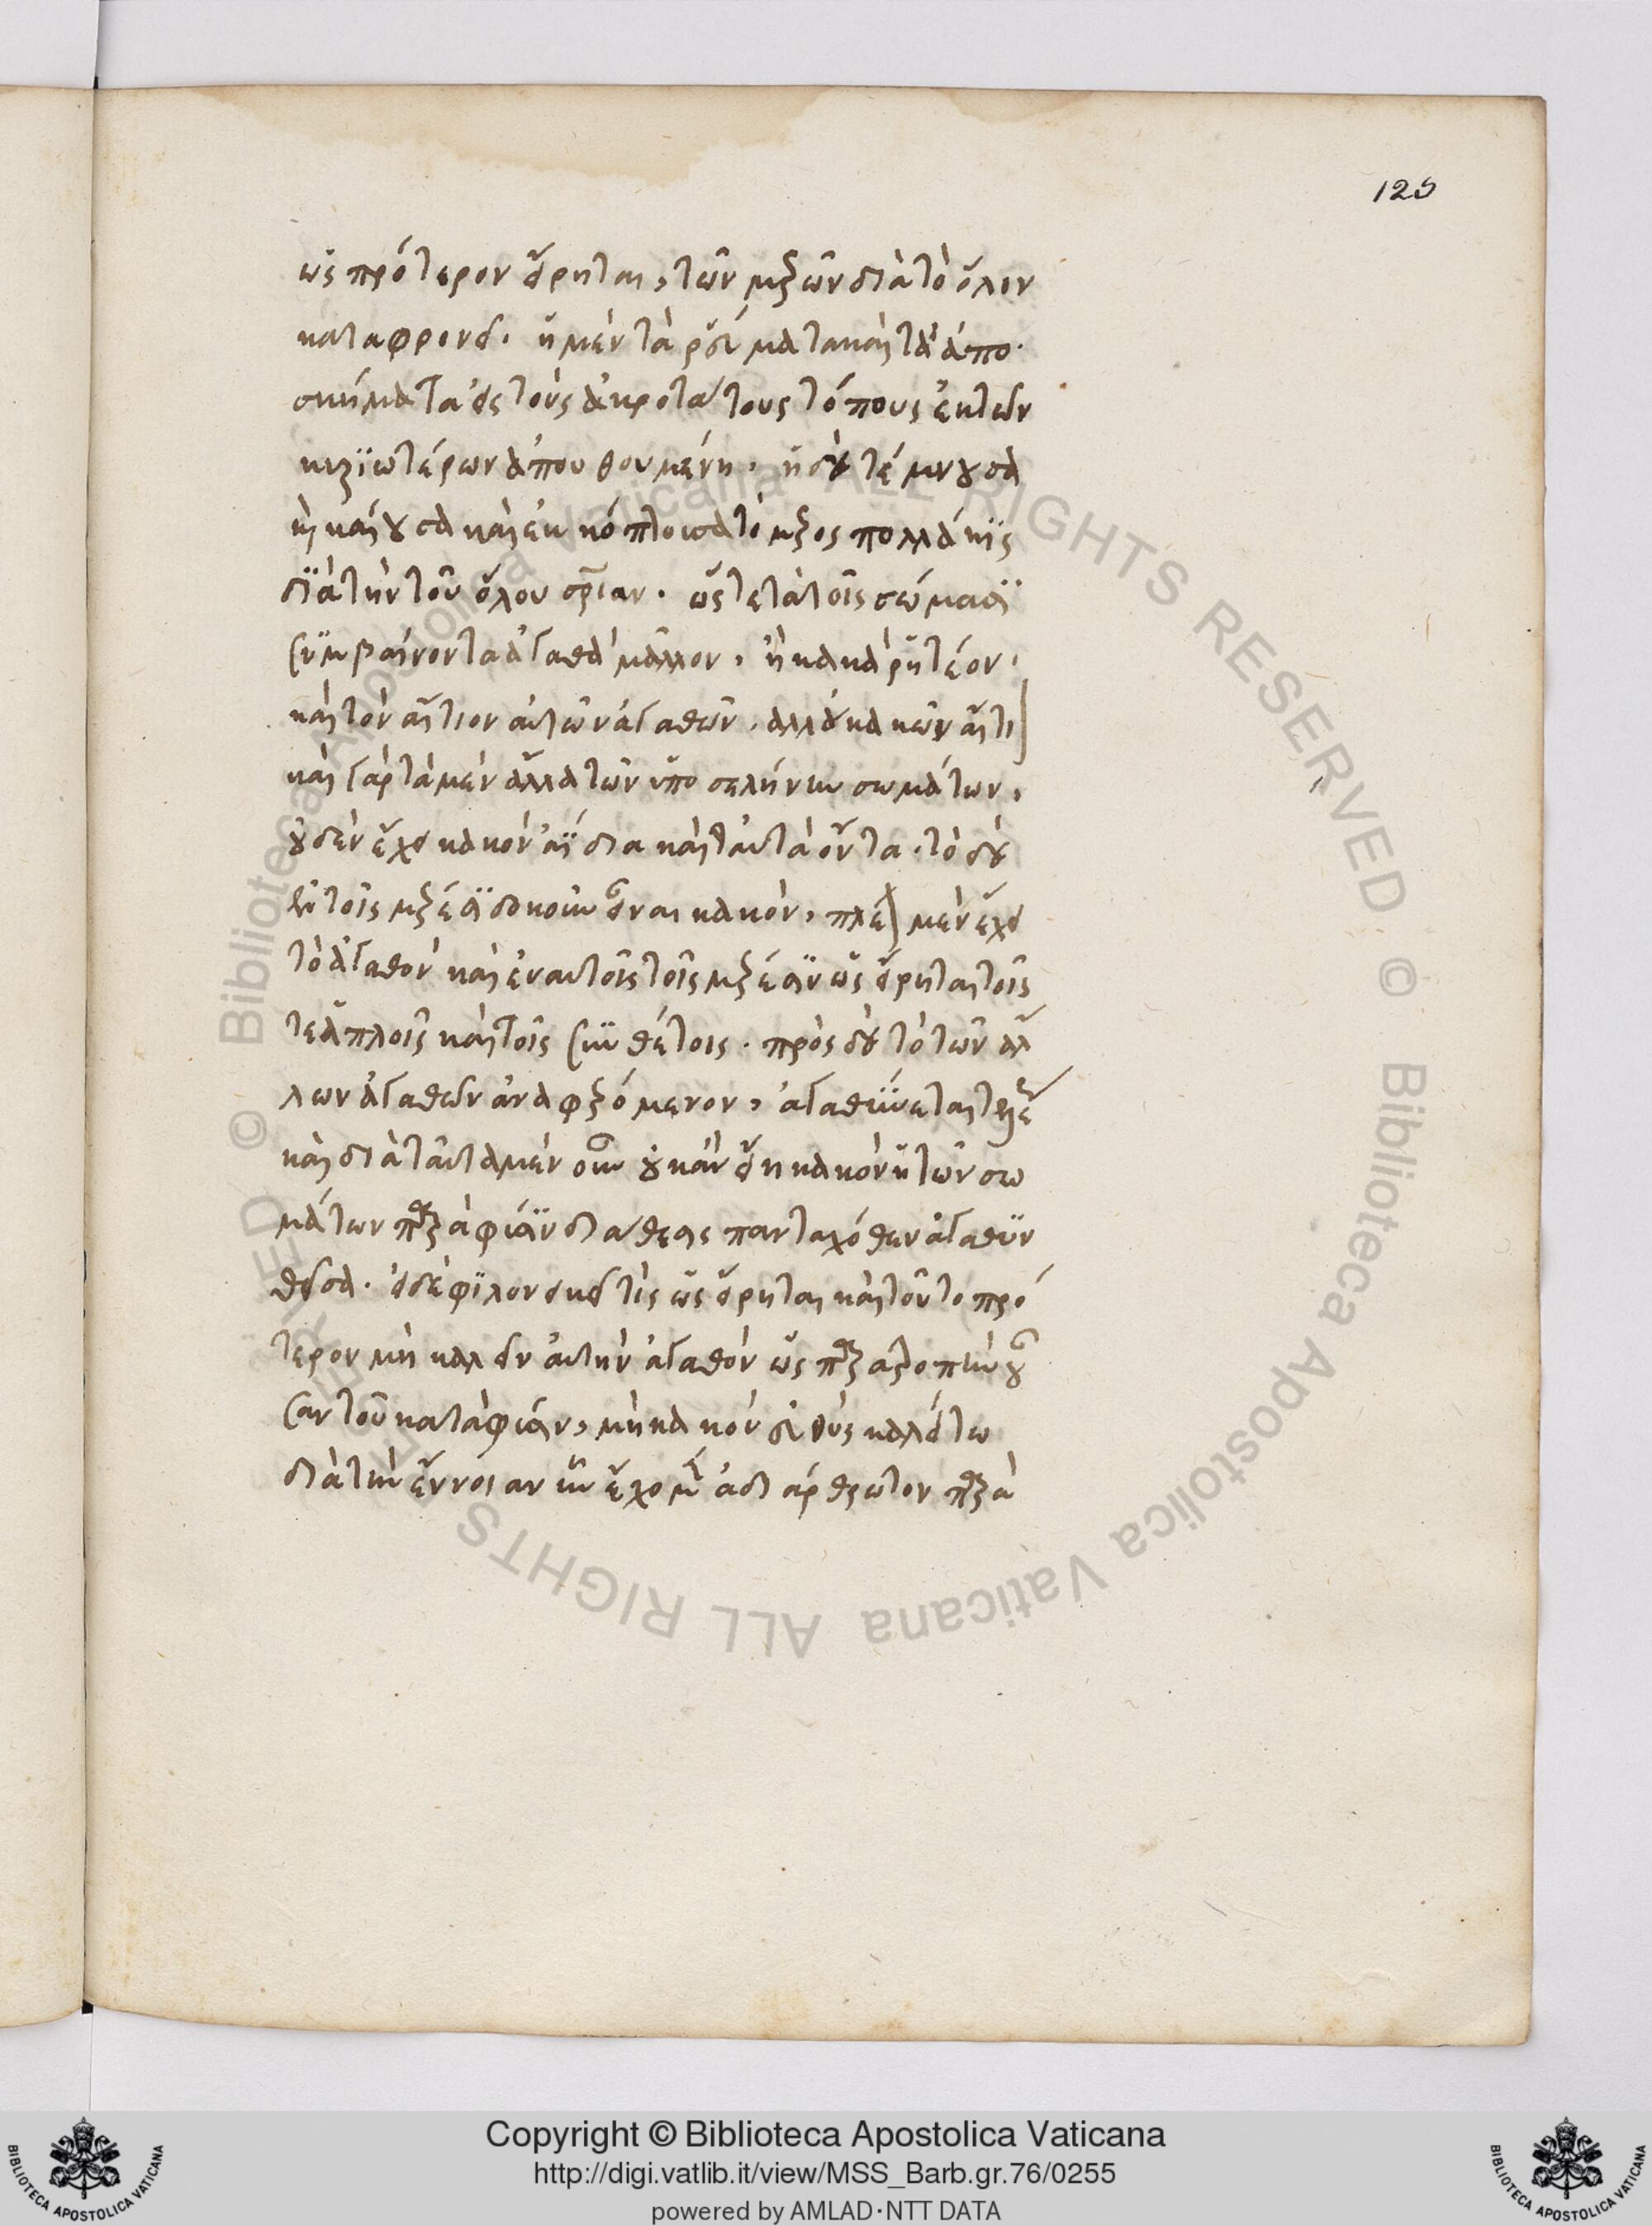 125
ὡς πρότερον εἴρηται, τῶν μερῶν διὰ τὸ ὅλον
καταφρονεῖ. ἢ μὲν τὰ ῥεύματα καὶ τὰ ἀπο
σκήματα εἰς τοὺς ἀκροτάτους τόπους ἐκ τῶν
κυριωτέρων ἀπωθουμένη, ἢ δὲ τέμνουσα
ἢ καίουσα καὶ ἐκκόπτουσα τὸ μέρος πολλάκις
διὰ τὴν τοῦ ὅλου σρίαν. ὥστε τὰ τοῖς σώμασι
συμβαίνοντα ἀγαθὰ μᾶλλον, ἢ κακὰ ῥητέον,
καὶ τὸν αἴτιον αὐτῶν ἀγαθῶν. ἀλλ' οὐ κακῶν αἴτι
καὶ γὰρ τὰ μὲν ἄλλα τῶν ὑπὸ σελήνην σωμάτων,
οὐδὲν ἔχει κακὸν ἀΐδια κατ' αὐτὰ ὄντα. τὸ δὲ
ἐν τοῖς μέρεσι δοκοῦν εἶναι κακόν, πλέον μὲν ἔχει
τὸ ἀγαθὸν καὶ ἐν αὐτοῖς τοῖς μέρεσιν ὡς εἴρηται τοῖς
τε ἁπλοῖς καὶ τοῖς συνθέτοις. πρὸς δὲ τὸ τῶν ἄλ
λων ἀγαθῶν ἀναφερόμενον, ἀγαθύνεται
καὶ διὰ ταῦτα μὲν οὖν οὐκ ἂν εἴη κακὸν ἢ τῶν σω
μάτων παρὰ φύσιν διάθεσις πανταχόθεν ἀγαθυν
θεῖσα. εἰ δὲ φιλονεικεῖ τις ὡς εἴρηται καὶ τοῦτο πρό
τερον μὴ καλεῖν αὐτὴν ἀγαθὸν ὡς
σαν τοῦ κατὰ φύσιν, μὴ κακὸν εὐθὺς καλείτω
διὰ τὴν ἔννοιαν ἣν ἔχομεν ἀδιάρθρωτον παρὰ
Copyright © Biblioteca Apostolica Vaticana
http://digi.vatlib.it/view/MSS_Barb.gr.76/0255
powered by AMLAD·NTT DATA
BIBLIOTECA APOSTOLICA VATICANA
BIBLIOTECA APOSTOLICA VATICANA
© Biblioteca Apostolica Vaticana ALL RIGHTS RESERVED © Biblioteca Apostolica Vaticana ALL RIGHTS RESERVED